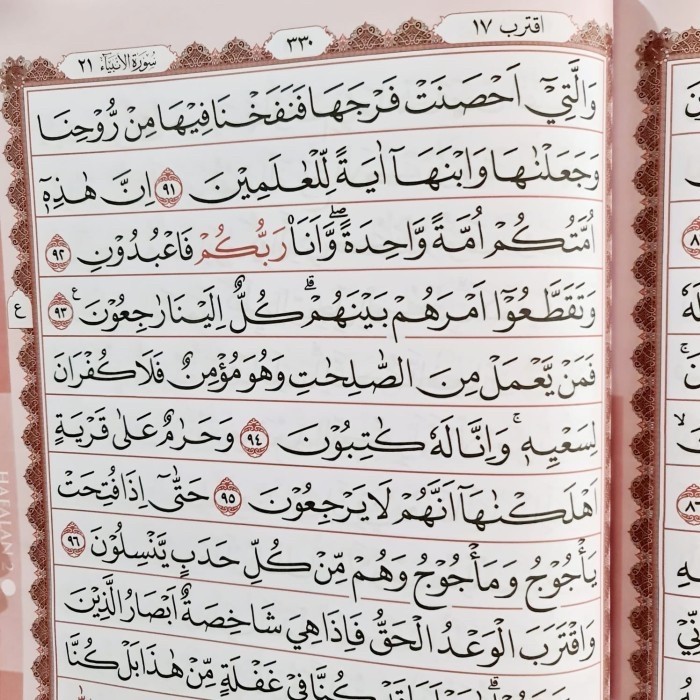 اقترب ١٧
٣٣٠
سُوْرَةُ الْاَنْبِيَاۤءِ ٢١
وَالَّتِيْٓ اَحْصَنَتْ فَرْجَهَا فَنَفَخْنَا فِيْهَا مِنْ رُّوْحِنَا
وَجَعَلْنٰهَا وَابْنَهَآ اٰيَةً لِّلْعٰلَمِيْنَ ٩١ اِنَّ هٰذِهٖٓ
اُمَّتُكُمْ اُمَّةً وَّاحِدَةًۖ وَّاَنَا۠ رَبُّكُمْ فَاعْبُدُوْنِ ٩٢
وَتَقَطَّعُوْٓا اَمْرَهُمْ بَيْنَهُمْۗ كُلٌّ اِلَيْنَا رٰجِعُوْنَ ع ٩٣
ع
فَمَنْ يَّعْمَلْ مِنَ الصّٰلِحٰتِ وَهُوَ مُؤْمِنٌ فَلَا كُفْرَانَ
لِسَعْيِهٖۚ وَاِنَّا لَهٗ كٰتِبُوْنَ ٩٤ وَحَرَامٌ عَلٰى قَرْيَةٍ
اَهْلَكْنٰهَآ اَنَّهُمْ لَا يَرْجِعُوْنَ ٩٥ حَتّٰىٓ اِذَا فُتِحَتْ
يَأْجُوْجُ وَمَأْجُوْجُ وَهُمْ مِّنْ كُلِّ حَدَبٍ يَّنْسِلُوْنَ ٩٦
وَاقْتَرَبَ الْوَعْدُ الْحَقُّ فَاِذَا هِيَ شَاخِصَةٌ اَبْصَارُ الَّذِيْنَ
كُنَّا فِيْ غَفْلَةٍ مِّنْ هٰذَا بَلْ كُنَّا
HAFALAN 2